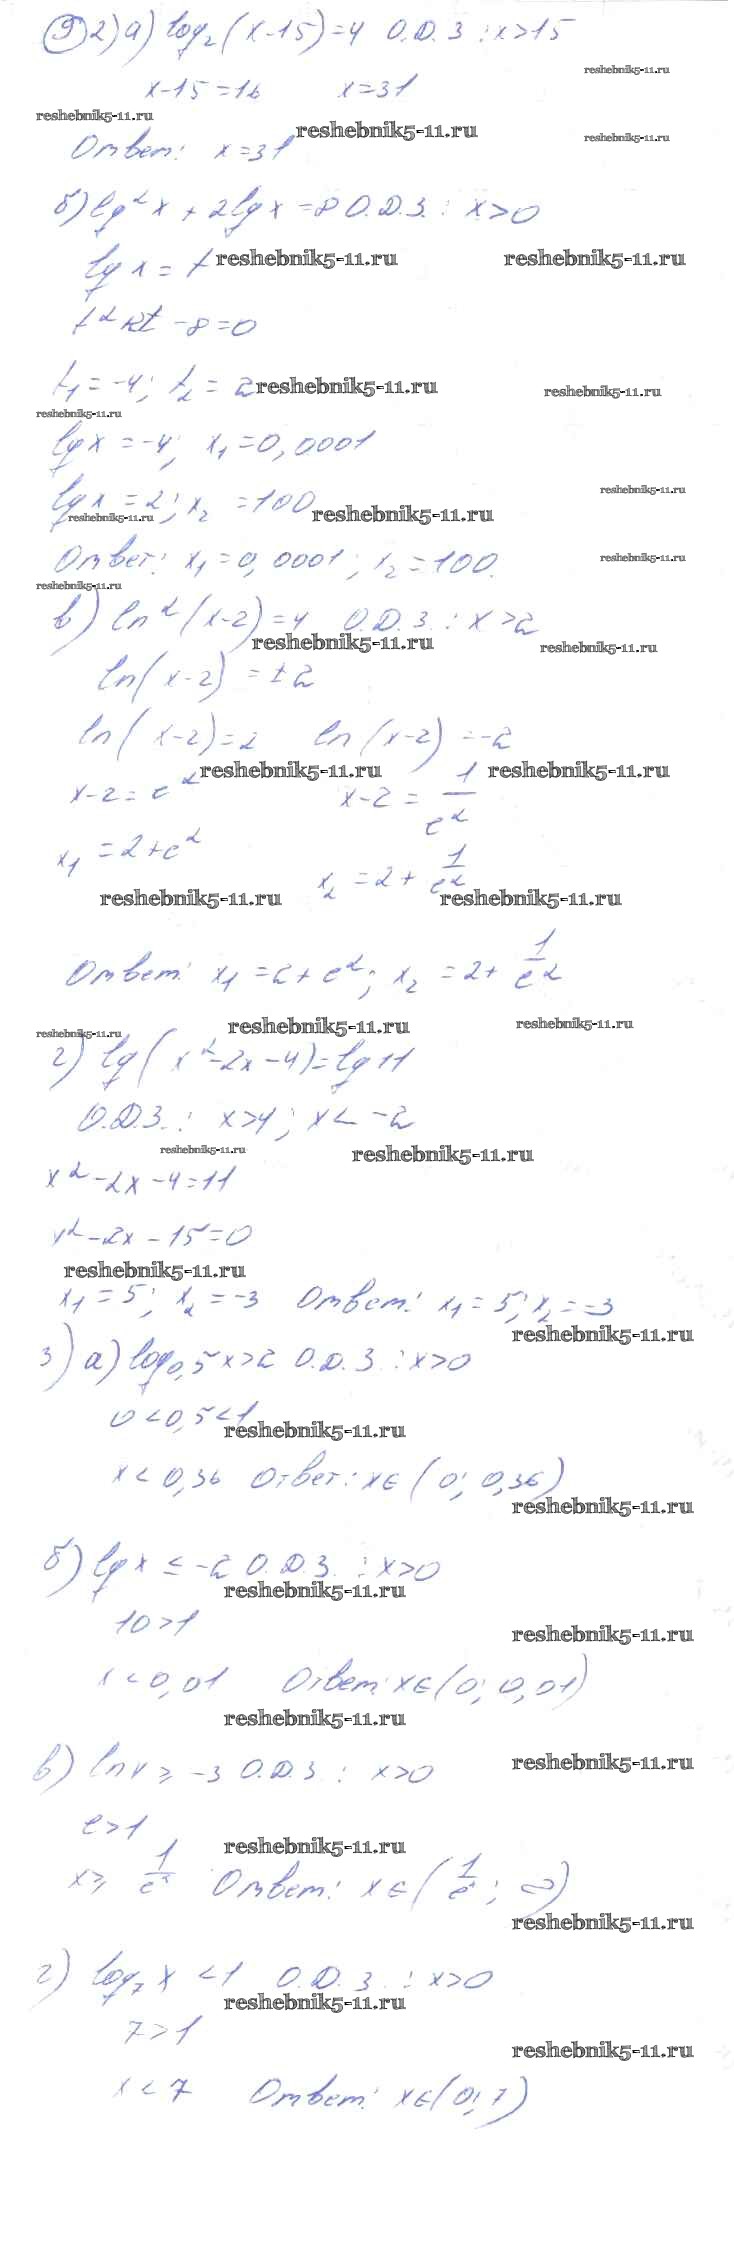 9) 2) а) log₂(x-15)=4 О.Д.З.: x>15
reshebnik5-11.ru
x-15=16 x=31
reshebnik5-11.ru
reshebnik5-11.ru
reshebnik5-11.ru
Ответ: x=31
б) lg²x+2lgx=8 О.Д.З.: x>0
lgx=t
reshebnik5-11.ru
reshebnik5-11.ru
t²+2t-8=0
t₁=-4; t₂=2
reshebnik5-11.ru
reshebnik5-11.ru
reshebnik5-11.ru
lgx=-4; x₁=0,0001
reshebnik5-11.ru
lgx=2; x₂=100
reshebnik5-11.ru
reshebnik5-11.ru
Ответ: x₁=0,0001; x₂=100.
reshebnik5-11.ru
reshebnik5-11.ru
в) ln²(x-2)=4 О.Д.З.: x>2
reshebnik5-11.ru
reshebnik5-11.ru
ln(x-2)=±2
ln(x-2)=2 ln(x-2)=-2
reshebnik5-11.ru
reshebnik5-11.ru
x-2=e² x-2=1/e²
x₁=2+e²
x₂=2+1/e²
reshebnik5-11.ru
reshebnik5-11.ru
Ответ: x₁=2+e²; x₂=2+1/e²
reshebnik5-11.ru
reshebnik5-11.ru
reshebnik5-11.ru
г) lg(x²-2x-4)=lg11
О.Д.З.: x>4; x<-2
reshebnik5-11.ru
reshebnik5-11.ru
x²-2x-4=11
x²-2x-15=0
reshebnik5-11.ru
x₁=5; x₂=-3 Ответ: x₁=5; x₂=-3
reshebnik5-11.ru
3) а) log₀,₅x>2 О.Д.З.: x>0
0<0,5<1
reshebnik5-11.ru
x<0,36 Ответ: x∈(0; 0,36)
reshebnik5-11.ru
б) lgx≤-2 О.Д.З.: x>0
reshebnik5-11.ru
10>1
reshebnik5-11.ru
x<0,01 Ответ: x∈(0; 0,01)
reshebnik5-11.ru
в) lnx≥-3 О.Д.З.: x>0
reshebnik5-11.ru
e>1
reshebnik5-11.ru
x≥ Ответ: x∈
reshebnik5-11.ru
г) log₇x<1 О.Д.З.: x>0
reshebnik5-11.ru
7>1
reshebnik5-11.ru
x<7 Ответ: x∈(0; 7)